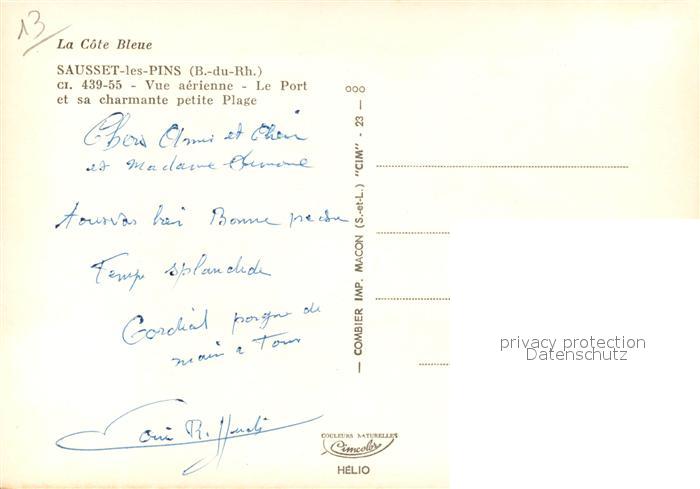 13
La Côte Bleue
SAUSSET-les-PINS (B.-du-Rh.)
CI. 439-55 - Vue aérienne - Le Port
et sa charmante petite Plage
Chers Amis et
et Madame
Bonne
Temps splandide
Cordial pogne de
main a Tous
R.
COMBIER IMP. MACON (S.-et-L.) "CIM" - 23 -
COULEURS NATURELLES
Cimcolor
HÉLIO
privacy protection
Datenschutz